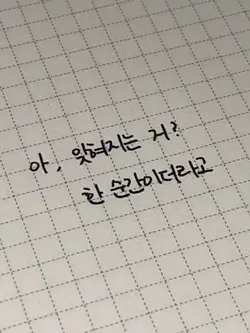 아, 잊혀지는 거?
한 순간이더라고